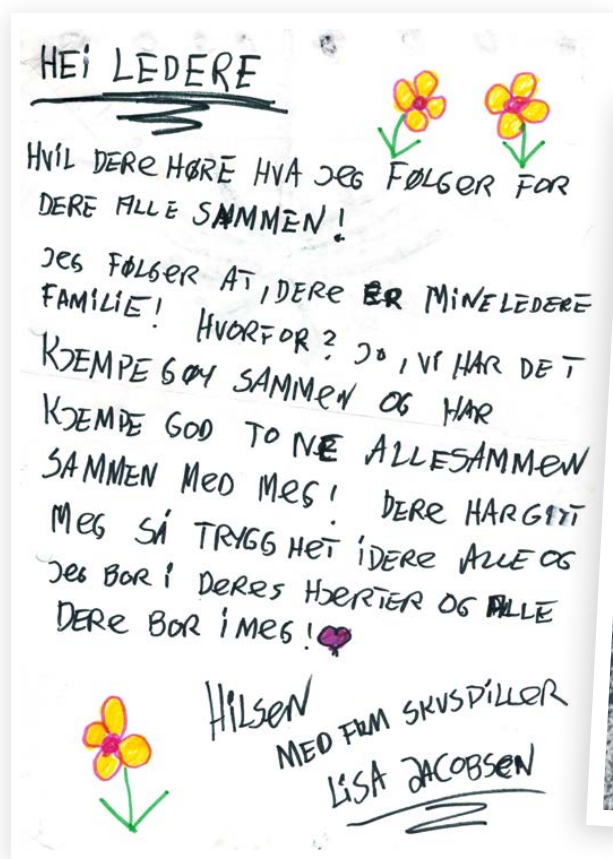 HEI LEDERE
HVIL DERE HØRE HVA JEG FØLGER FOR
DERE ALLE SAMMEN!
JEG FØLGER AT, DERE ER MINE LEDERE
FAMILIE! HVORFOR? JO, VI HAR DET
KJEMPE GØY SAMMEN OG HAR
KJEMPE GOD TONE ALLESAMMEN
SAMMEN MED MEG! DERE HAR GITT
MEG SÅ TRYGG HET I DERE ALLE OG
JEG BOR I DERES HJERTER OG ALLE
DERE BOR I MEG!
HILSEN
MED FILM SKUSPILLER
LISA JACOBSEN